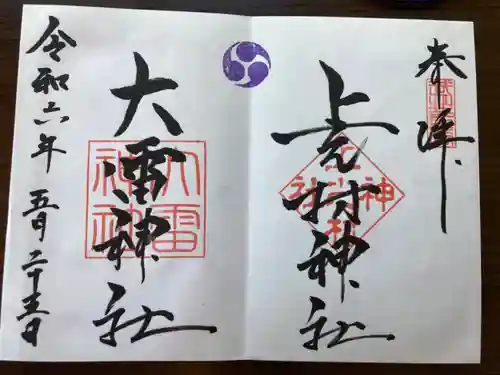 奉拝
上之村神社
上之村神社
大雷神社
大雷神社
令和六年 五月二十五日